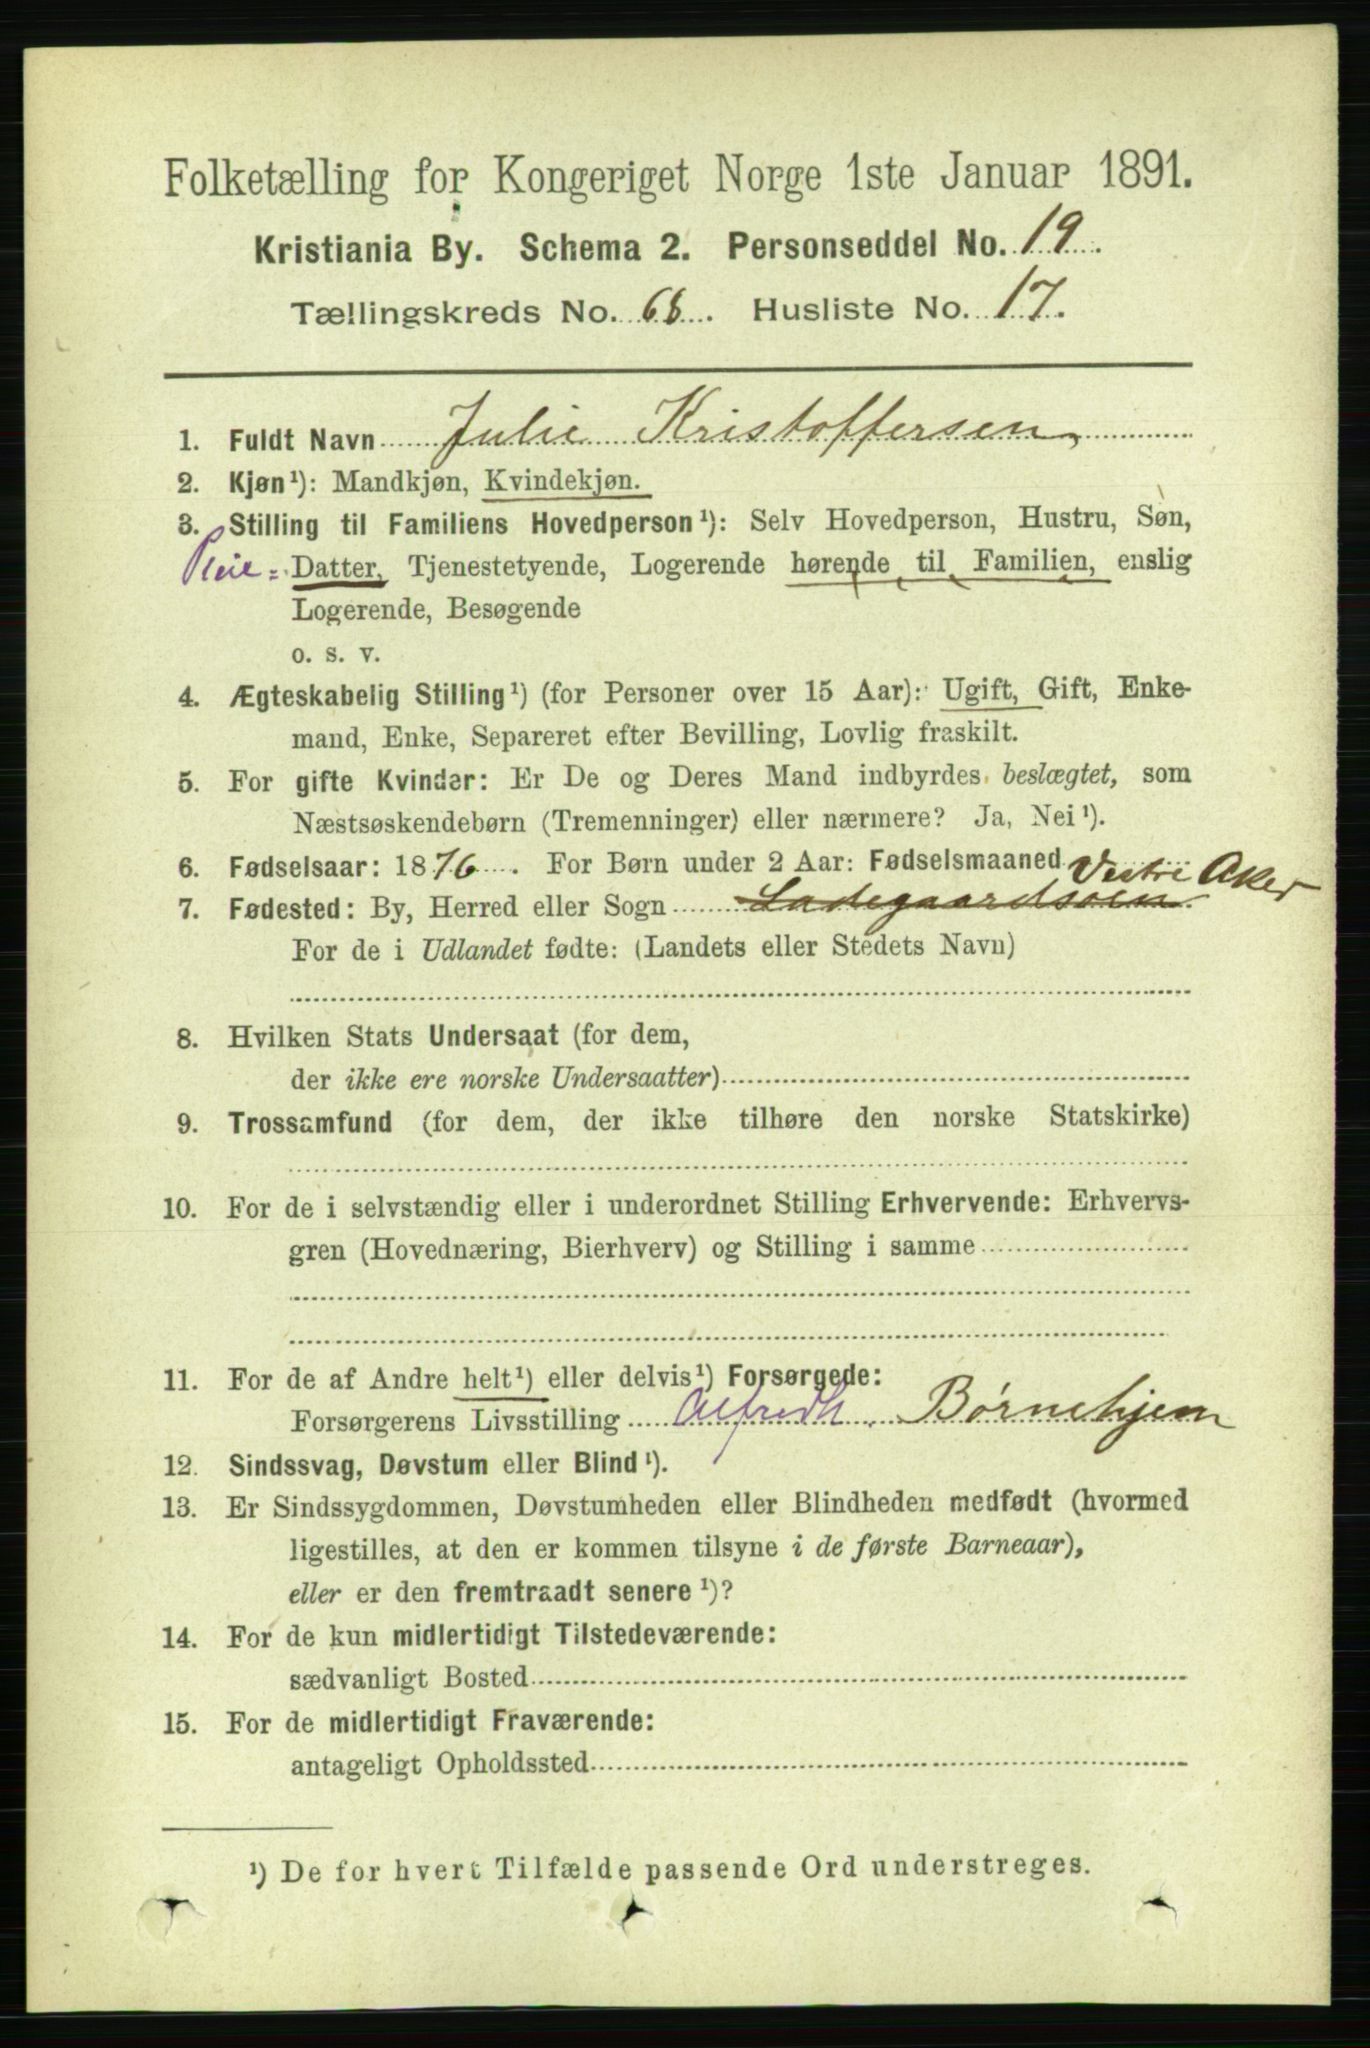 Folketælling for Kongeriget Norge 1ste Januar 1891.
Kristiania By. Schema 2. Personseddel No. 19.
Tællingskreds No. 68. Husliste No. 17.
1. Fuldt Navn Julie Kristoffersen,
2. Kjøn¹): Mandkjøn, Kvindekjøn.
3. Stilling til Familiens Hovedperson¹): Selv Hovedperson, Hustru, Søn,
Pleie= Datter, Tjenestetyende, Logerende hørende til Familien, enslig
Logerende, Besøgende
o. s. v.
4. Ægteskabelig Stilling¹) (for Personer over 15 Aar): Ugift, Gift, Enke-
mand, Enke, Separeret efter Bevilling, Lovlig fraskilt.
5. For gifte Kvinder: Er De og Deres Mand indbyrdes beslægtet, som
Næstsøskendebørn (Tremenninger) eller nærmere? Ja, Nei¹).
6. Fødselsaar: 1876. For Børn under 2 Aar: Fødselsmaaned
Vestre Aker
7. Fødested: By, Herred eller Sogn Ladegaardsøen.
For de i Udlandet fødte: (Landets eller Stedets Navn)
8. Hvilken Stats Undersaat (for dem,
der ikke ere norske Undersaatter)
9. Trossamfund (for dem, der ikke tilhøre den norske Statskirke)
10. For de i selvstændig eller i underordnet Stilling Erhvervende: Erhvervs-
gren (Hovednæring, Bierhverv) og Stilling i samme
11. For de af Andre helt¹) eller delvis¹) Forsørgede:
Forsørgerens Livsstilling Børnehjem
12. Sindssvag, Døvstum eller Blind¹).
13. Er Sindssygdommen, Døvstumheden eller Blindheden medfødt (hvormed
ligestilles, at den er kommen tilsyne i de første Barneaar),
eller er den fremtraadt senere¹)?
14. For de kun midlertidigt Tilstedeværende:
sædvanligt Bosted
15. For de midlertidigt Fraværende:
antageligt Opholdssted
¹) De for hvert Tilfælde passende Ord understreges.